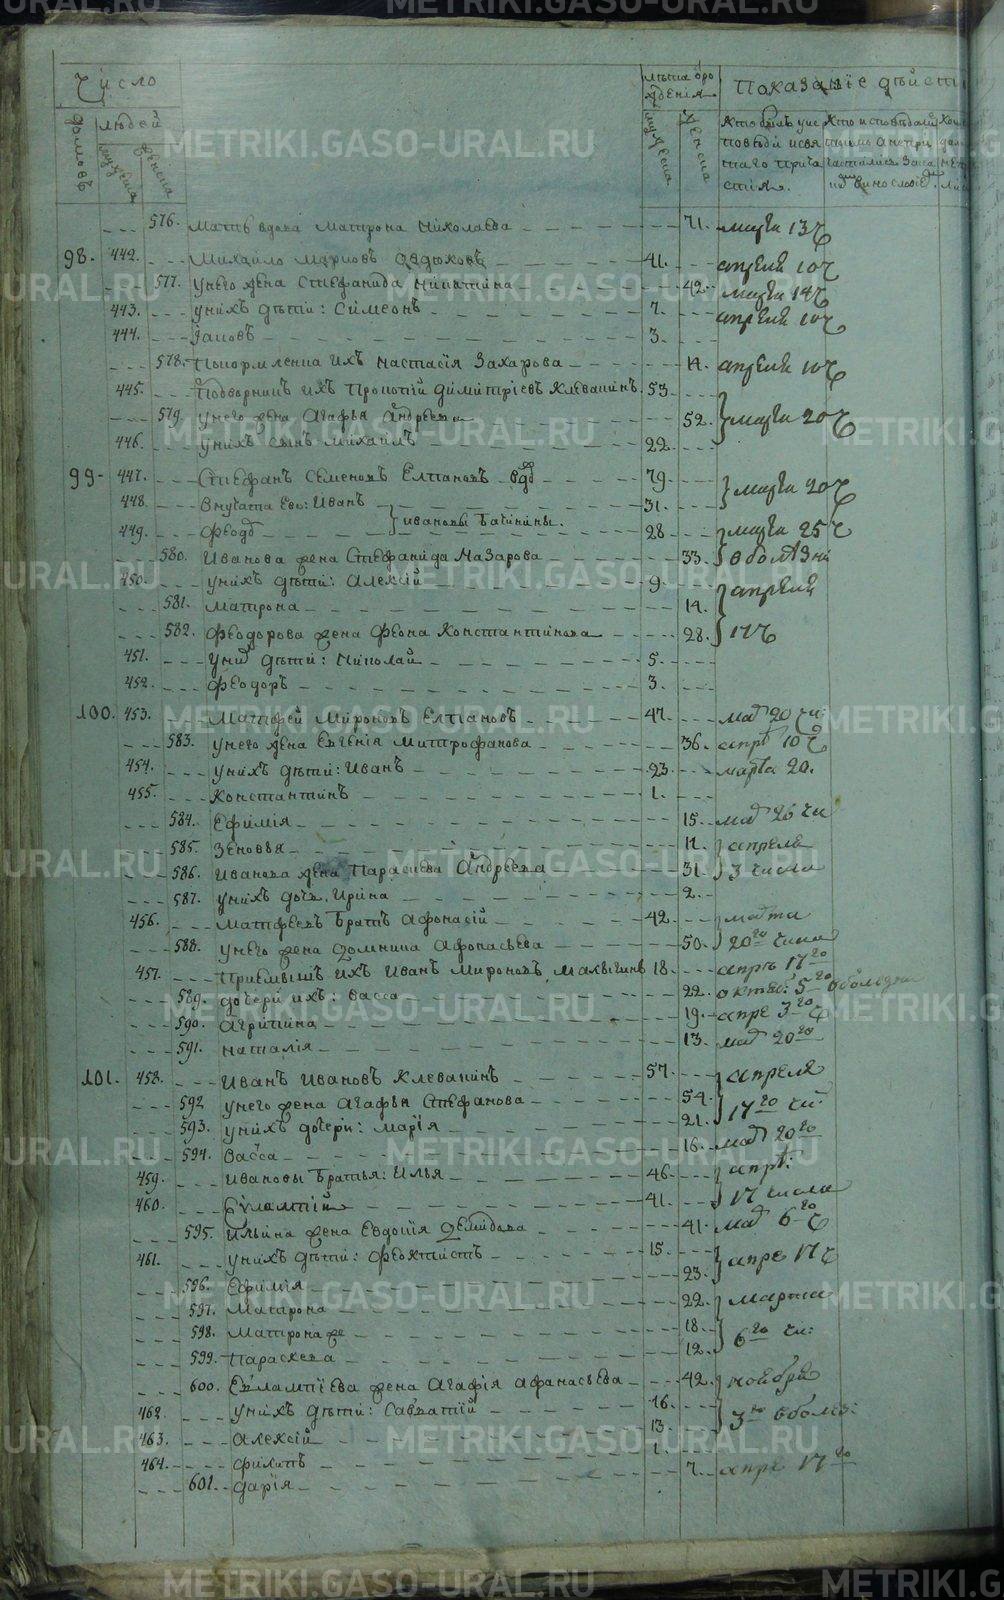 Число
домовъ
людей
мужеска
женска
лѣта рождения
мужеска
женска
Показаніе дѣйст
576. Мать вдова Матрона Николаева 71. марта 13 ч
98. 442. Михайло Марковъ Овдюковъ 41. апреля 10 ч
577. У него жена Стефанида Никитина 42. марта 14 ч
443. У нихъ дѣти: Симеонъ 7. апреля 10 ч
444. Іаковъ 3.
578. Покормленца ихъ Настасія Захарова 14. апреля 10 ч
445. Подворникъ ихъ Прокопій Димитріевъ Клевакинъ 53
579. У него жена Агафья Андреева 52. марта 20 ч
446. У нихъ сынъ Михаилъ 22.
99 447. Стефанъ Семеновъ Елпановъ вдъ 79 марта 20 ч
448. Внучата ево: Иванъ 31.
449. Феодъ Ивановы 28 марта 25 ч
580. Иванова жена Стефанида Назарова 33. в болѣзни
450. У нихъ дѣти: Алексій 9. апреля
581. Матрона 14.
582. Феодорова жена Феона Константинова 28. 17 ч
451. У них дѣти: Николай 5.
452. Феодоръ 3.
100. 453. Матфей Мироновъ Елпановъ 47. мар 20 чи
583. У него жена Евгенія Митрофанова 36. апре 10 ч
454. У нихъ дѣти: Иванъ 23. марта 20.
455. Константинъ 1.
584. Ефимія 15. мар 26 чи
585. Зеновья 11. апреля
586. Иванова жена Парасева Андреева 31. 3 числа
587. У нихъ дочь Ирина 2.
456. Матфеевъ братъ Афонасій 42. марта
588. У него жена Домника Афонасьева 50. 20го числа
457. Приемышъ ихъ Иванъ Мироновъ 18. апре 17го
589. дочери ихъ: Васса 22. октяб: 5го в болезни
590. Агрипина 19. апре 3го ч
591. Наталія 13. мар 20го
101. 458. Иванъ Ивановъ Клевакинъ 57. апреля
592 У него жена Агафья Стефанова 54. 17го чи:
593. У нихъ дочери: Марія 21.
594. Васса 16. мар 20го
459. Ивановы братья: Илья 46. апре:
460. Евлампій 41. 17 числа
595. Ильина жена Евдокія Демидова 41. мар 6го ч
461. У нихъ дѣти: Феоктистъ 15. апре 17 ч
596. Ефимія 23.
597. Матрона 22. марта
598. Матрона же 18. 6го чи:
599. Параскева 12.
600. Евлампіева жена Агафія Афанасьева 42. ноября
462. У нихъ дѣти: Савватій 16. 3го в болез:
463. Алексій 13.
464. Филипъ 1.
601. Дарія 7. апре 17го
METRIKI.GASO-URAL.RU